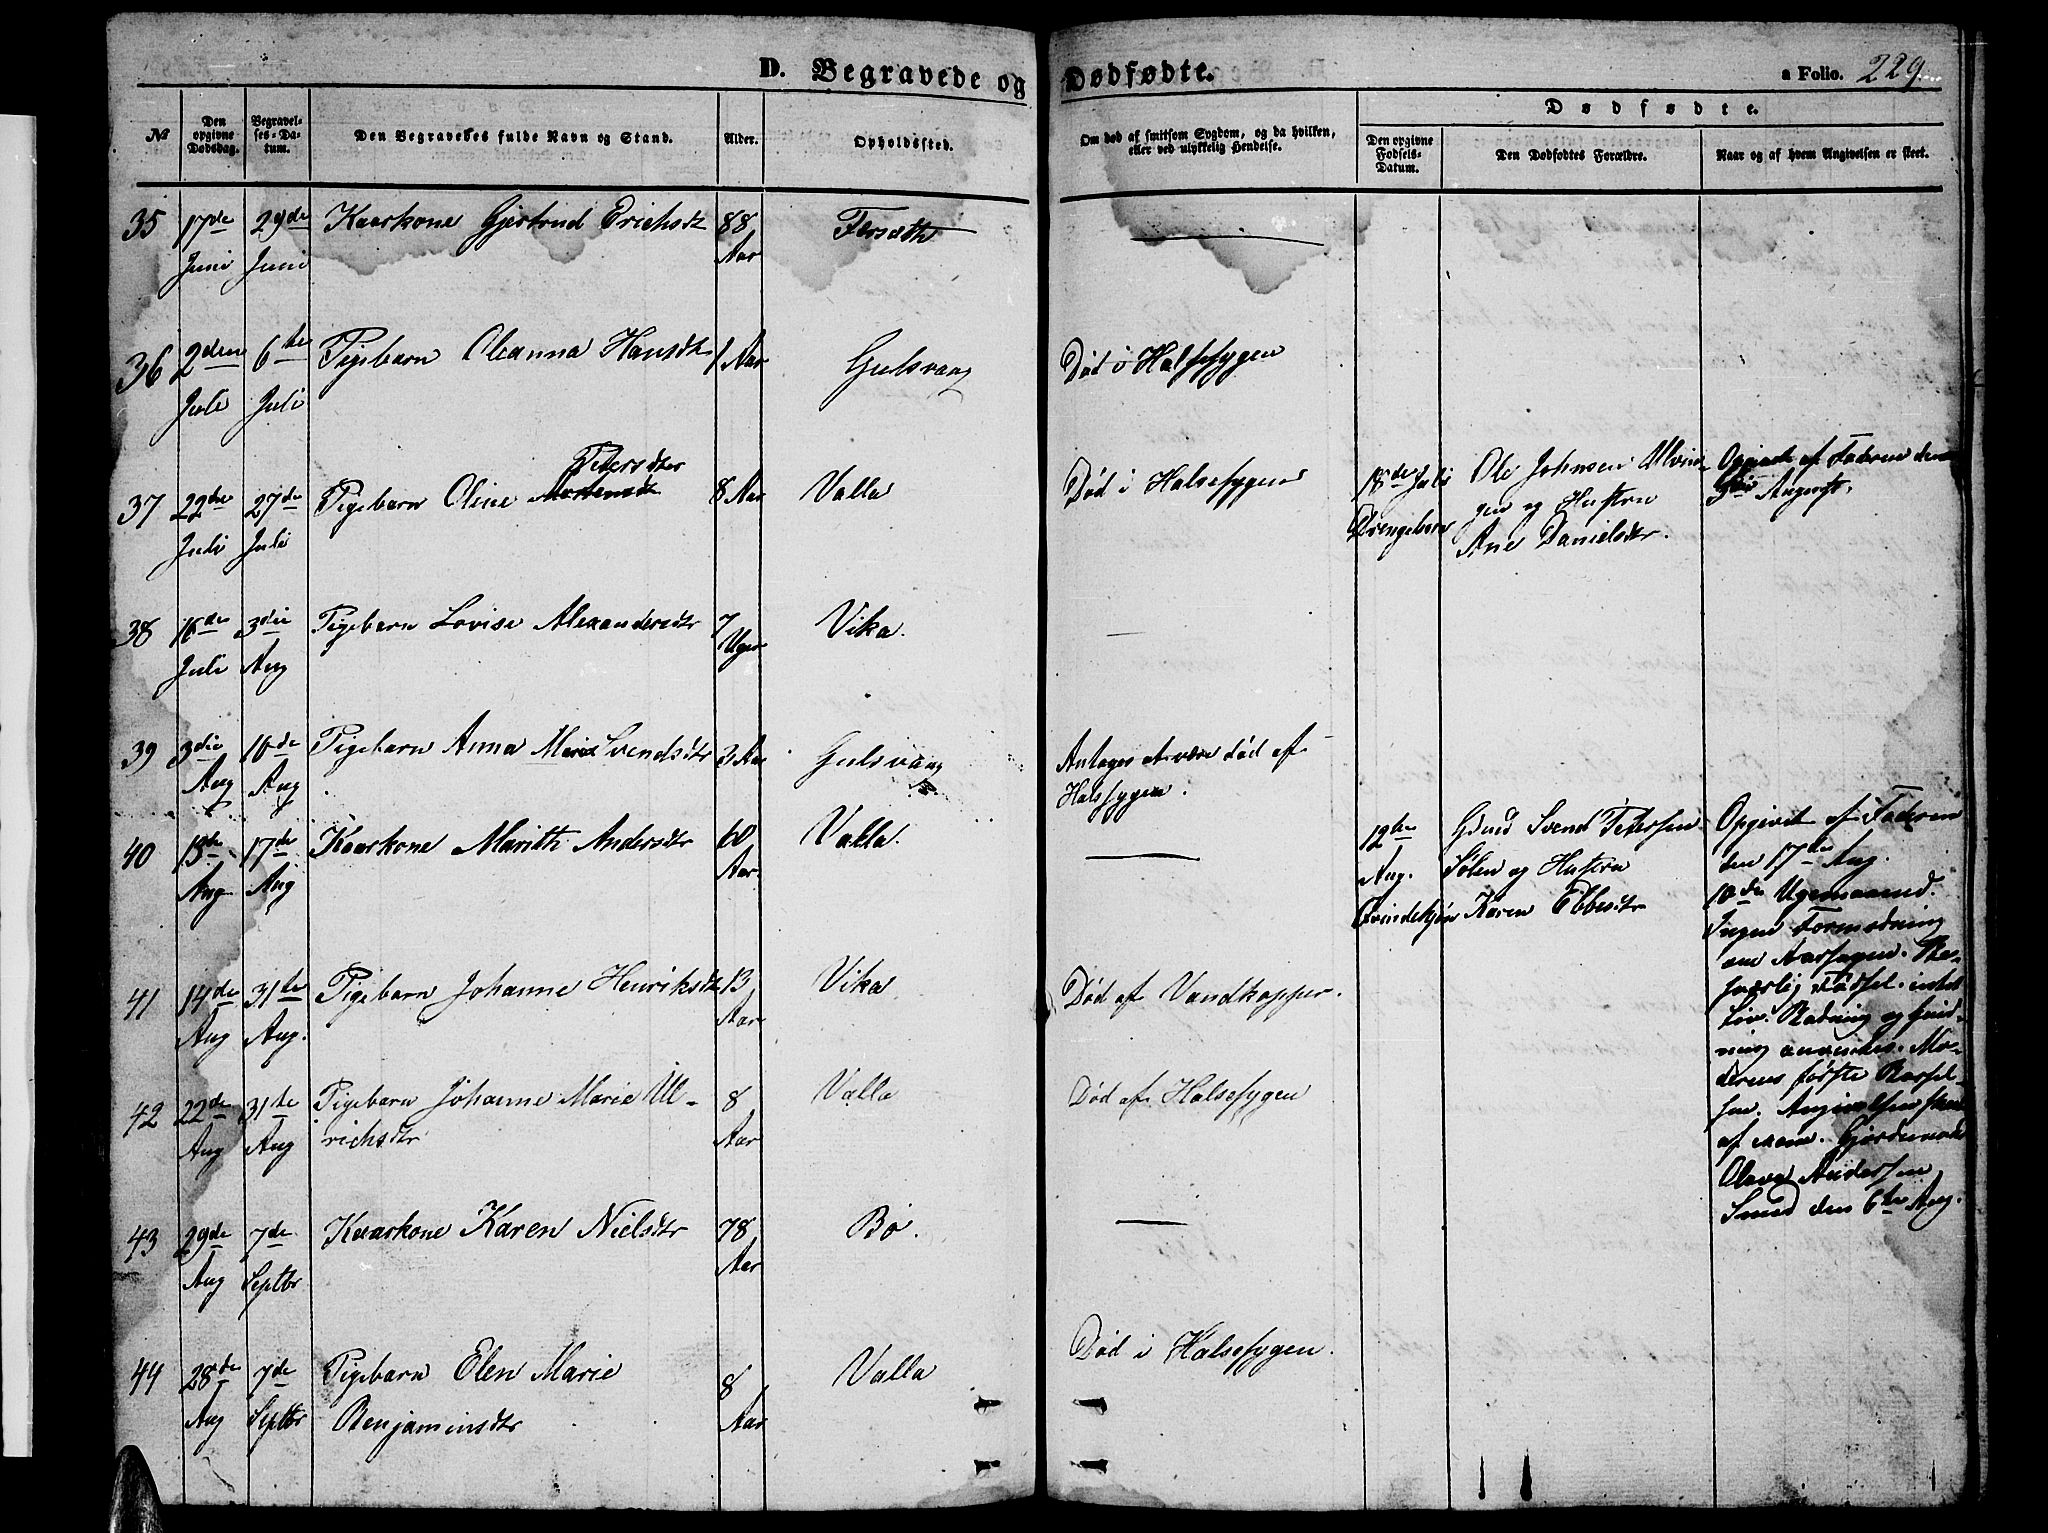 D. Begravede og Dødfødte.
a Folio. 229
№
Den opgivne Dødsdag.
Begravelses-Datum.
Den Begravedes fulde Navn og Stand.
Alder.
Opholdssted.
Om død af smitsom Sygdom, og da hvilken, eller ved ulykkelig Hendelse.
Dødfødte.
Den opgivne Fødsels-Datum.
Den Dødfødtes Forældre.
Naar og af hvem Angivelsen er skeet.
35 17de 29de Kaarkone Gjertrud Erichsdt 88
Juni Juni Aar
36 2den 6te Pigebarn Oleanna Hansdtr 1 Aar Gulsvaag Død i Halssygen
Juli Juli
Petersdter
37 22de 27de Pigebarn Oline 8 Aar Valla Død i Halsesygen
Juli Juli
18de Juli
Drengebarn
Ole Johnsen Ulvin-
gen og Hustru
Ane Danielsdtr.
af Faderen den
August.
38 16de 3die Pigebarn Lovise Alexandersdtr 7 Vika.
Juli Aug Uger
39 3die 10de Pigebarn Anna Maria Svendsdtr 3 Aar Gulsvaag Antages at være død af
Aug Aug Halssygen.
40 15de 17de Kaarkone Marith Andersdtr 60 Valla.
Aug Aug Aar
12te
Aug.
Qvindekjøn
Gmd Svend Petersen
Sølen og Hustru
Karen Ebbesdtr
Opgivet af Faderen
den 17de Aug.
10de Ugemaaned.
Ingen Formodning
om Aarsagen. Be-
sværlig Fødsel. intet
Liv. Badning og Gnid-
ning anvendes. Mo-
derens første Barsel-
af
Olava Andersen
den 6te Aug.
41 14de 31te Pigebarn Johanne Henriksdt 13 Vika Død af Vandkopper.
Aug Aug. Aar
42 22de 31te Pigebarn Johanne Marie Ul- 8 Valla Død af Halsesygen
Aug Aug richsdtr Aar
43 29de 7de Kaarkone Karen Nielsdtr 78 Bø.
Aug Septbr Aar
44 28de 7de Pigebarn Elen Marie 8 Valla Død i Halsesygen.
Aug Septbr Benjaminsdtr Aar